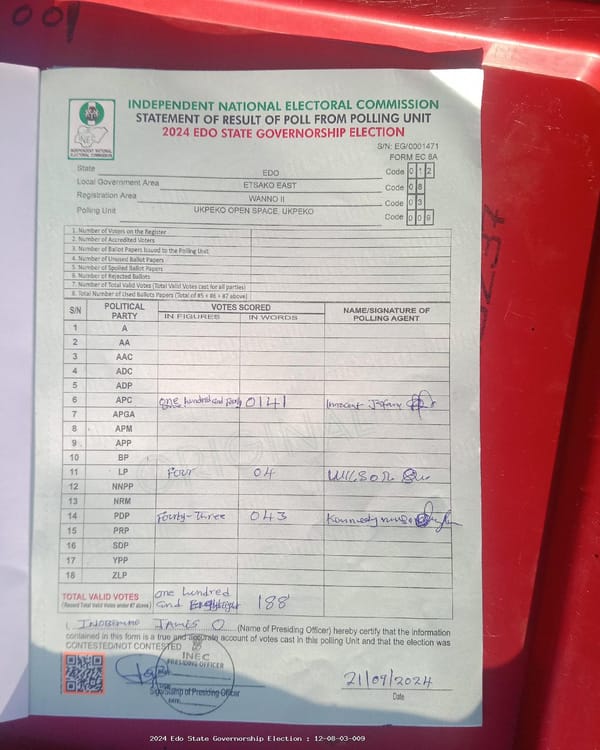 001
INDEPENDENT NATIONAL ELECTORAL COMMISSION
STATEMENT OF RESULT OF POLL FROM POLLING UNIT
2024 EDO STATE GOVERNORSHIP ELECTION
INEC
INDEPENDENT NATIONAL ELECTORAL COMMISSION
S/N: EG/0001471
FORM EC 8A
State EDO Code 012
Local Government Area ETSAKO EAST Code 08
Registration Area WANNO II Code 03
Polling Unit UKPEKO OPEN SPACE, UKPEKO Code 009
1. Number of Voters on the Register
2. Number of Accredited Voters
3. Number of Ballot Papers Issued to the Polling Unit
4. Number of Unused Ballot Papers
5. Number of Spoiled Ballot Papers
6. Number of Rejected Ballots
7. Number of Total Valid Votes (Total Valid Votes cast for all parties)
8. Total Number of Used Ballots Papers (Total of #5 + #6 + #7 above)
S/N POLITICAL PARTY VOTES SCORED NAME/SIGNATURE OF POLLING AGENT
IN FIGURES IN WORDS
1 A
2 AA
3 AAC
4 ADC
5 ADP
6 APC one hundred and 0141 Innocent
7 APGA
8 APM
9 APP
10 BP
11 LP Four 04 WILSON
12 NNPP
13 NRM
14 PDP Fourty-Three 043 Kennedy
15 PRP
16 SDP
17 YPP
18 ZLP
ORIGINAL
TOTAL VALID VOTES one hundred
(Record Total Valid Votes under #7 above) and 188
I, JAMES O. (Name of Presiding Officer) hereby certify that the information
contained in this form is a true and accurate account of votes cast in this polling Unit and that the election was
CONTESTED/NOT CONTESTED
INEC
PRESIDING OFFICER
DATE
Sign/Stamp of Presiding Officer
21/09/2024
Date
2024 Edo State Governorship Election : 12-08-03-009